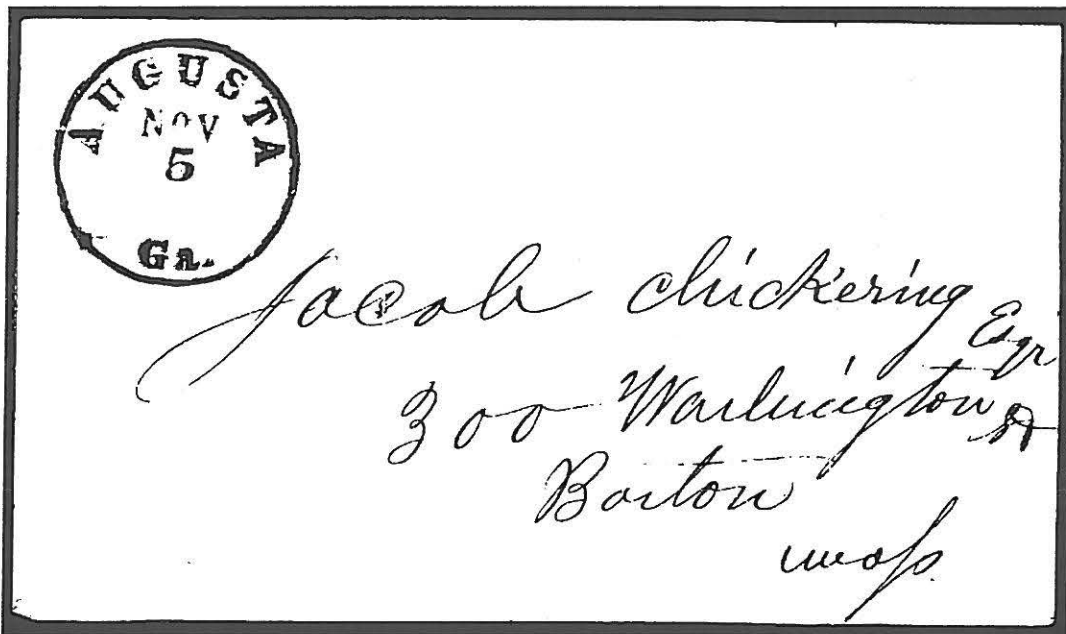 AUGUSTA
NOV
5
Ga.
Jacob Chickering Esqr
300 Washington St
Boston
Mass